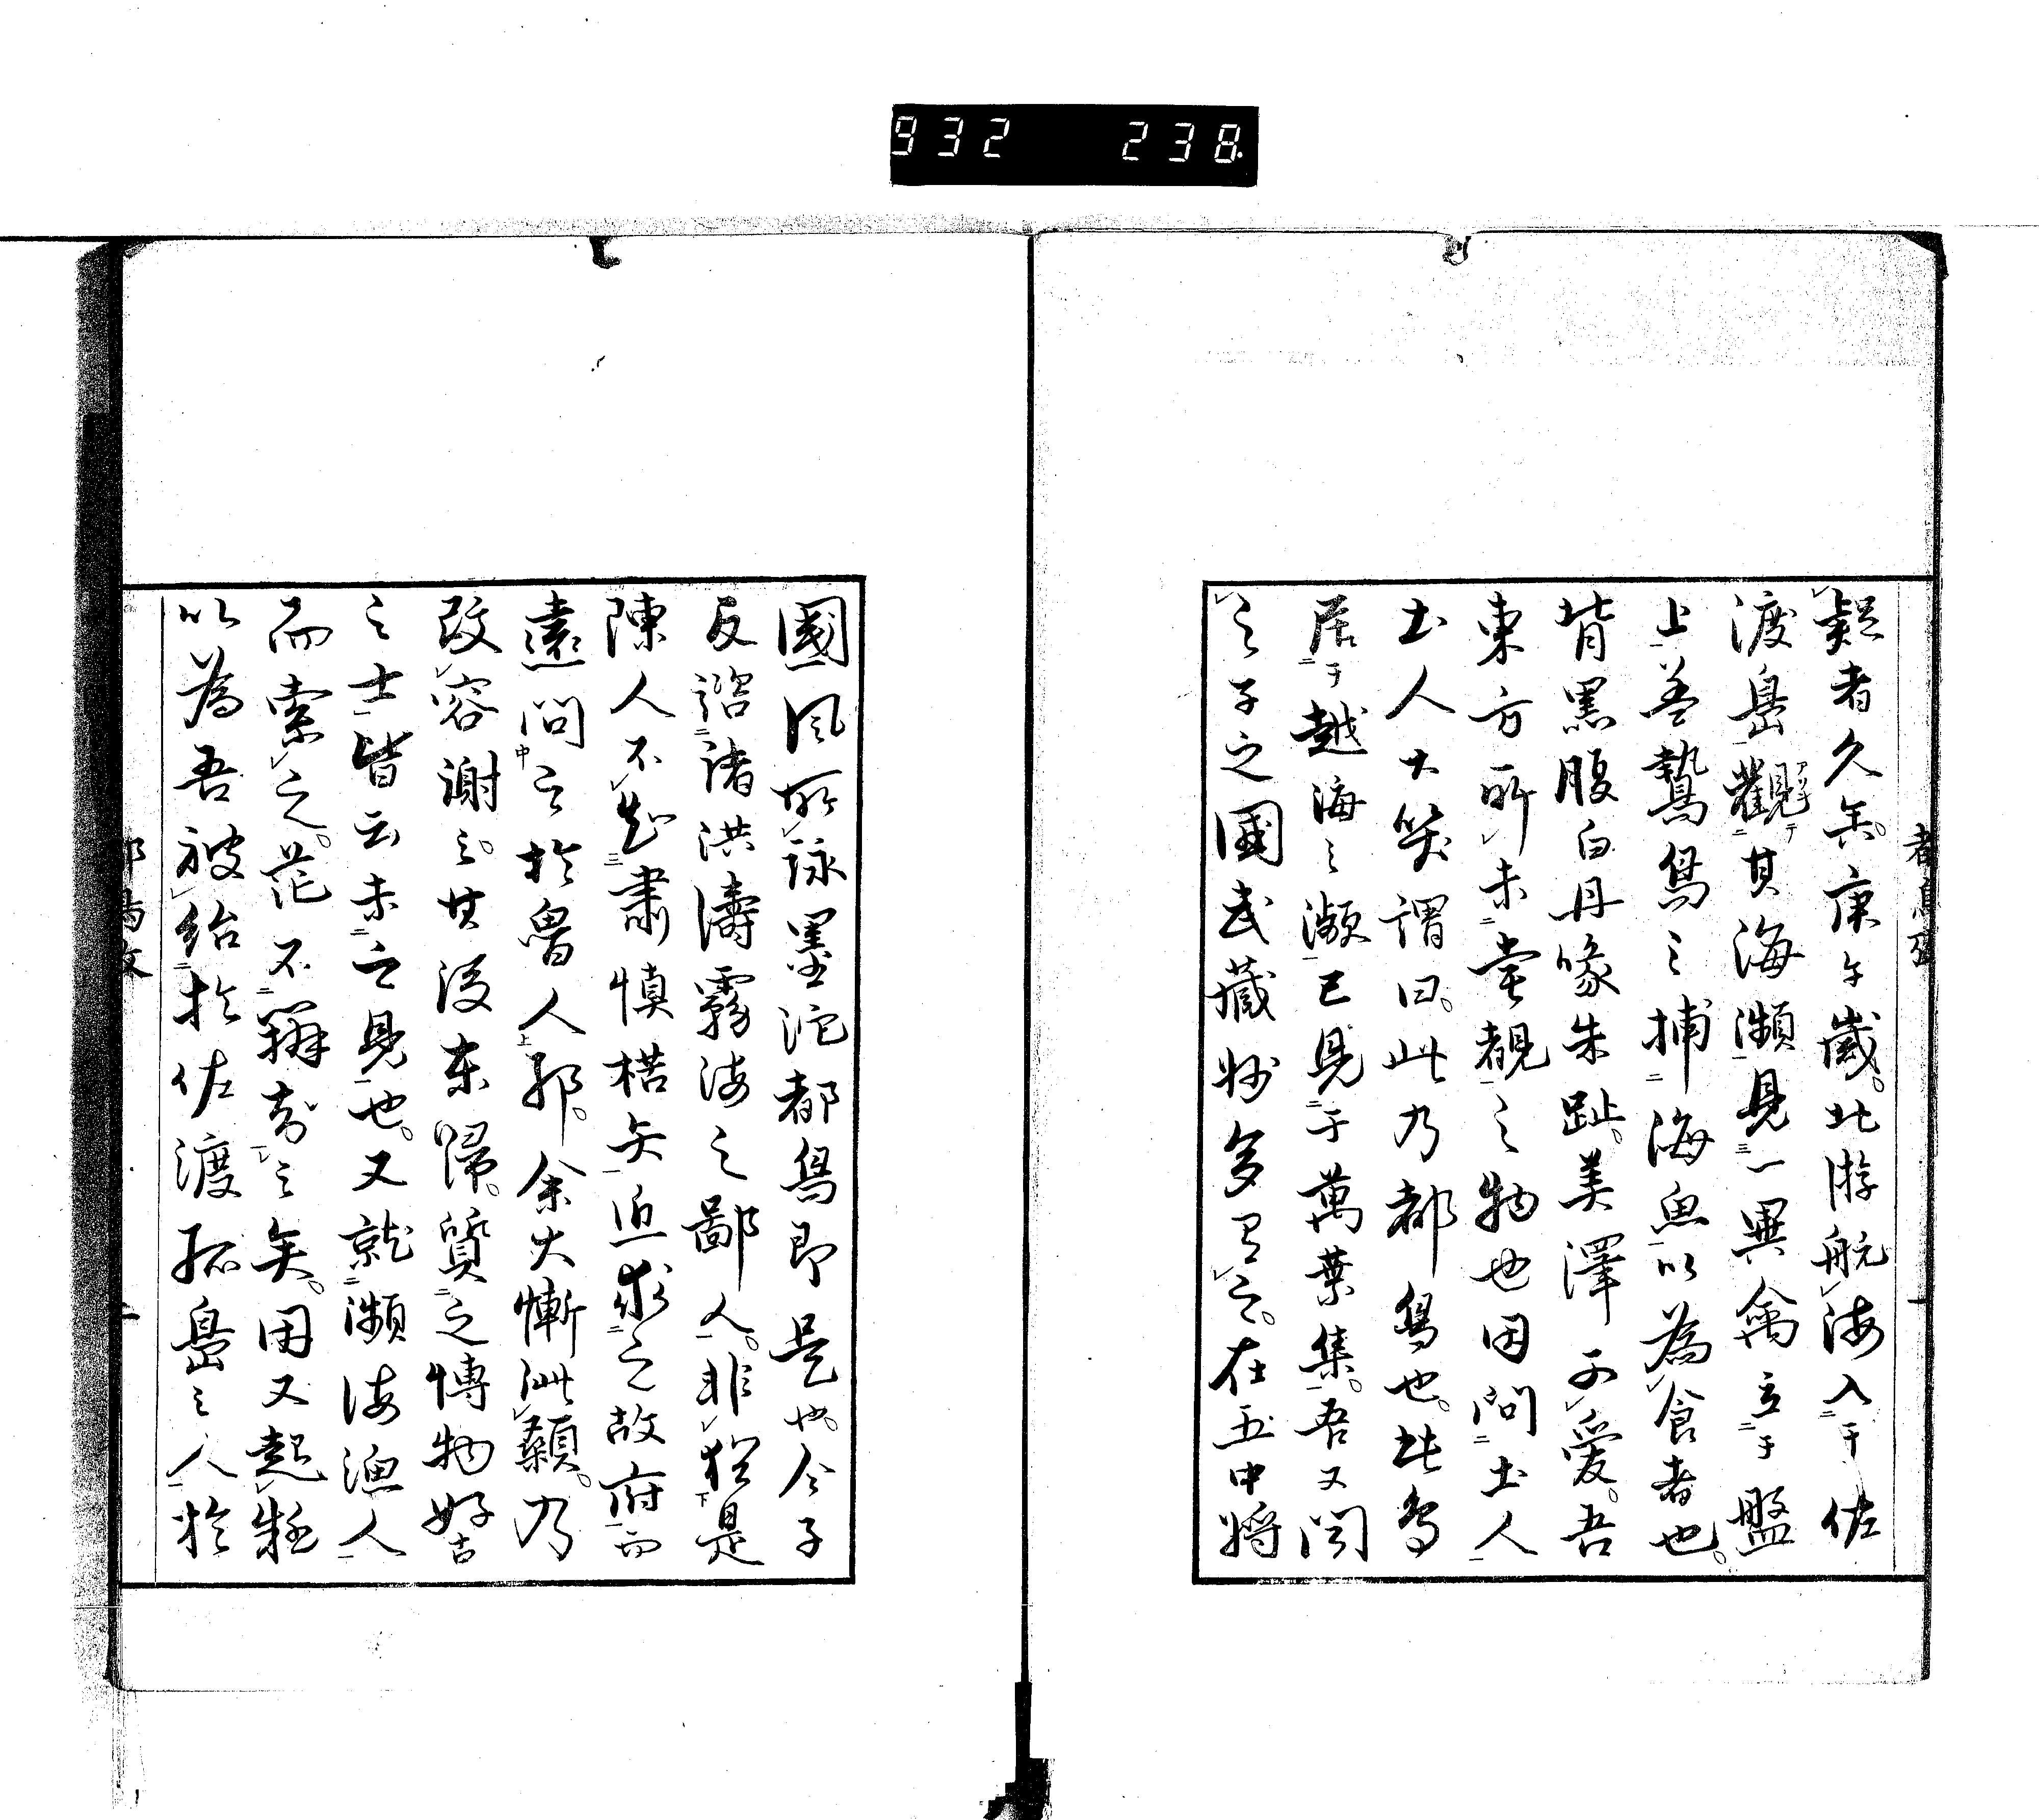 932 238
疑者久矣。庚午歲。北游航海入于佐
渡島觀于其海瀕見一異禽立于盤
上蓋鷙鳥之捕海魚以為食者也。
背黒腹白丹喙朱趾。美澤可愛。吾
東方所未嘗覩之物也因問土人
土人大笑謂曰。此乃都鳥也。此鳥
居于越海之瀕已見于萬葉集。吾又聞
之子之國武藏州多有之。在五中將
國風所詠墨沱都鳥即是也。今子
反諮諸洪濤霧海之鄙人。非猶是
陳人不知肅慎楛矢近求之故府而
遠問之於魯人邪。余大慚泚顙。乃
改容謝之。其後東歸。質之博物好古
之士皆云未之見也。又就瀕海漁人
而索之。茫不辨知之矣。因又起疑
以為吾被紿於佐渡孤島之人於